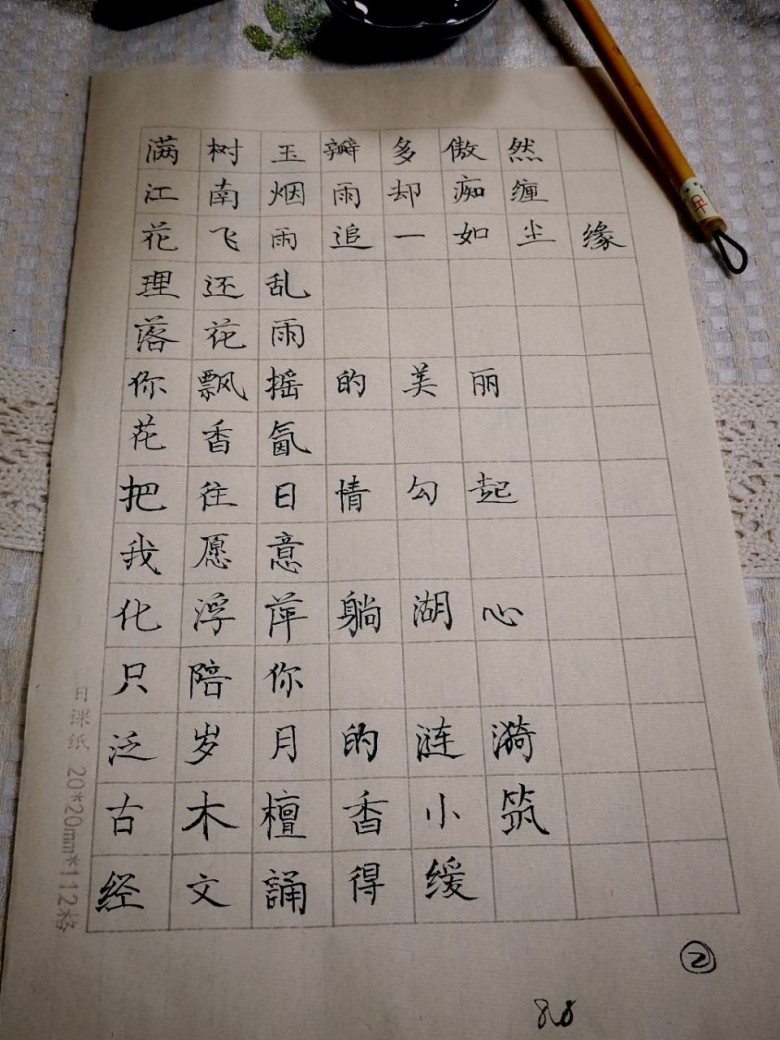 满树玉瓣多傲然
江南烟雨却痴缠
花飞雨追一如尘缘
理还乱
落花雨
你飘摇的美丽
花香氤
把往日情勾起
我愿意
化浮萍躺湖心
只陪你
泛岁月的涟漪
古木檀香小筑
经文誦得缓
日课纸 20*20mm*112格
②